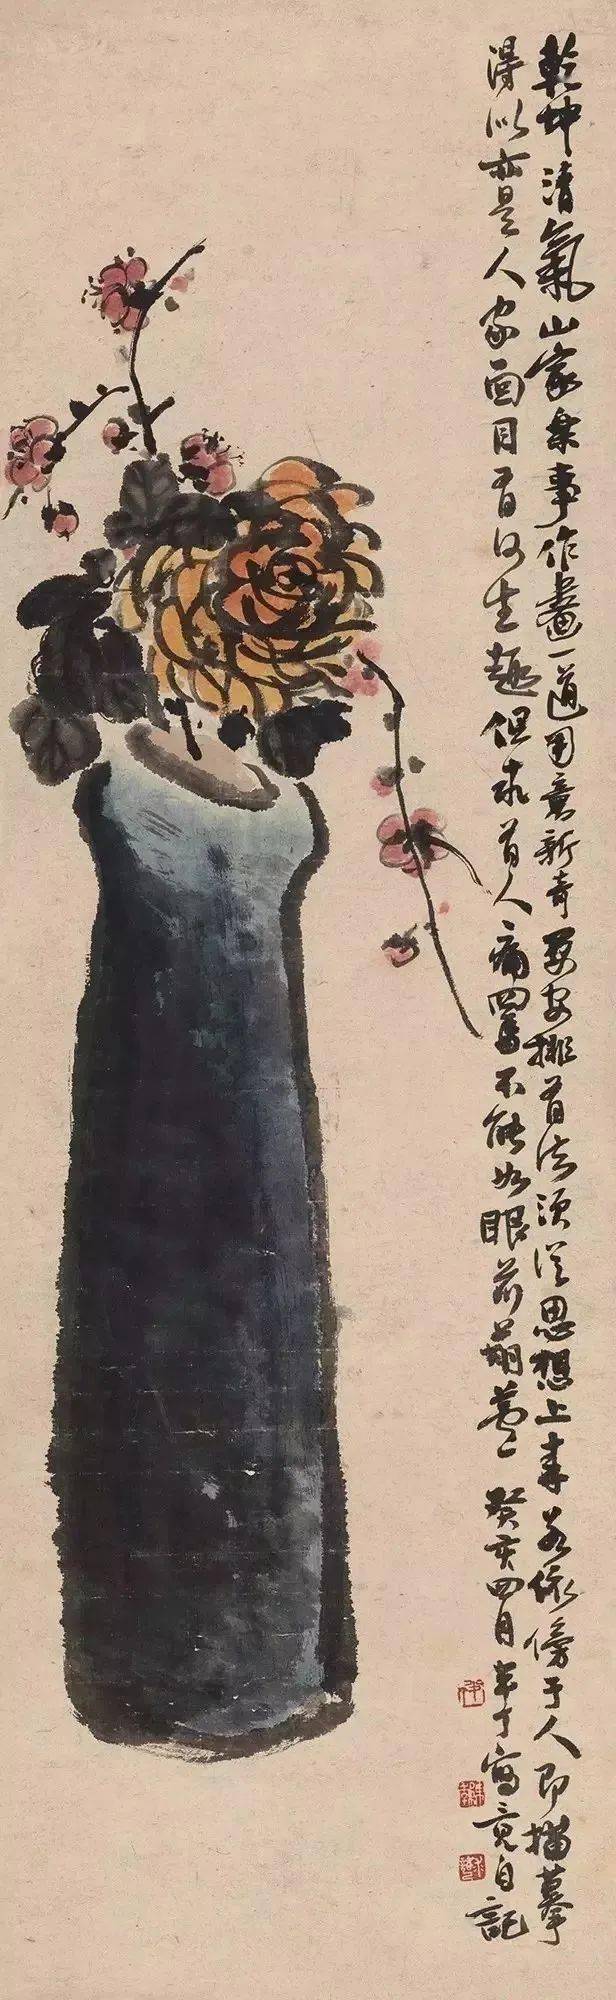 乾坤清氣山家樂事作畫一道用意新奇要安排有法須從思想上来若依傍于人即描摹
得似亦是人家面目有何生趣但求前人痛
不能如眼前葫蘆 癸亥四月半丁寫竟自記